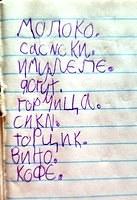 МОЛОКО.
САСИСКИ.
ИМУЛЕМЕ.
ЙОГУТ.
ГОРЧИЦА.
СИКИ.
ТОРЩИК.
ВИНО.
КОФЕ.